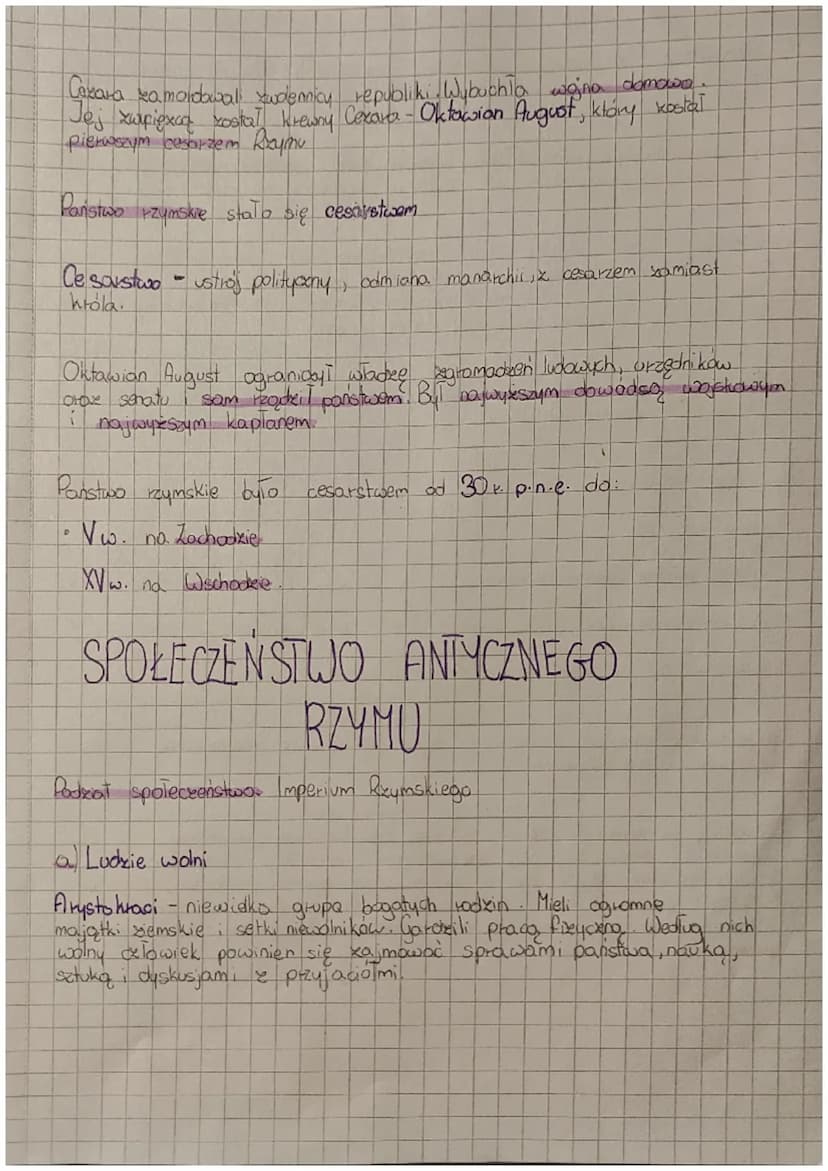 Cezara zamordowali zwolennicy republiki. Wybuchła wojna domowa.
Jej zwycięzcą został krewny Cezara - Oktawian August, który został
pierwszym cesarzem Rzymu
Państwo rzymskie stało się cesarstwem
Cesarstwo - ustrój polityczny, odmiana manarchii, z cesarzem zamiast
króla.
Oktawian August ograniczył władzę zgromadzeń ludowych, urzędników
oraz senatu i sam rządził państwem. Był najwyższym dowódcą wojskowym
i najwyższym kapłanem.
Państwo rzymskie było cesarstwem od 30 r. p.n.e. do:
• V w. na Zachodzie
XV w. na Wschodzie.
SPOŁECZEŃSTWO ANTYCZNEGO
RZYMU
Podział społeczeństwa Imperium Rzymskiego
a) Ludzie wolni
Arystokraci - niewielka grupa bogatych rodzin. Mieli ogromne
majątki ziemskie i setki niewolników. Gardzili pracą fizyczną. Według nich
wolny człowiek powinien się zajmować sprawami państwa, nauką,
sztuką i dyskusjami z przyjaciółmi.